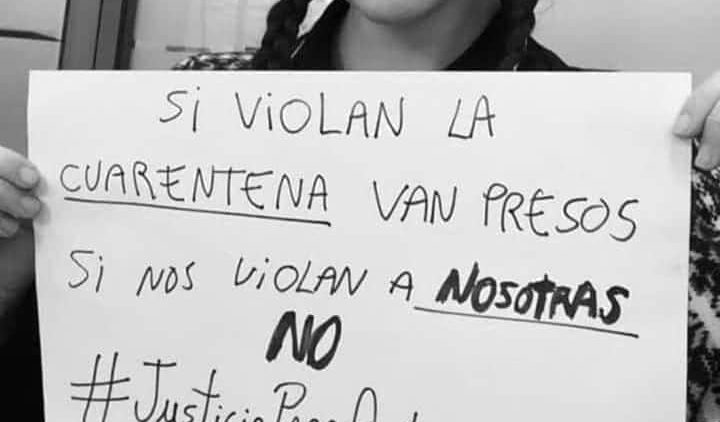 Si VIOLAN LA
CUARENTENA VAN PRESOS
Si NOS VIOLAN A NOSOTRAS
NO
#Justicia Para